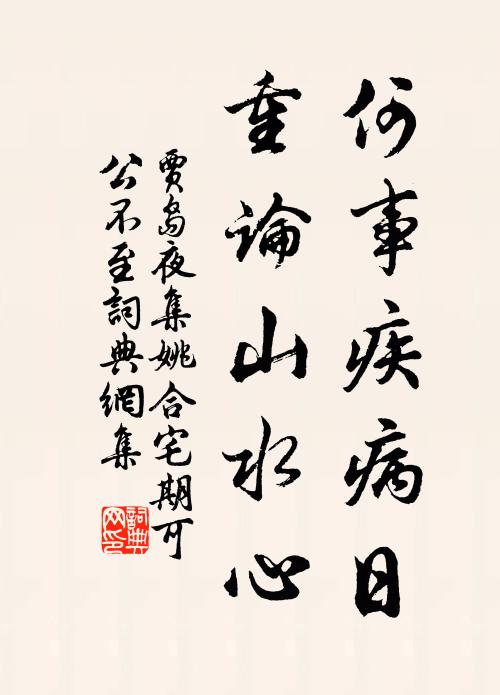 何事疾病日
重論山水心
賈島夜集姚合宅期可
公不至詞典網集
詞典网印